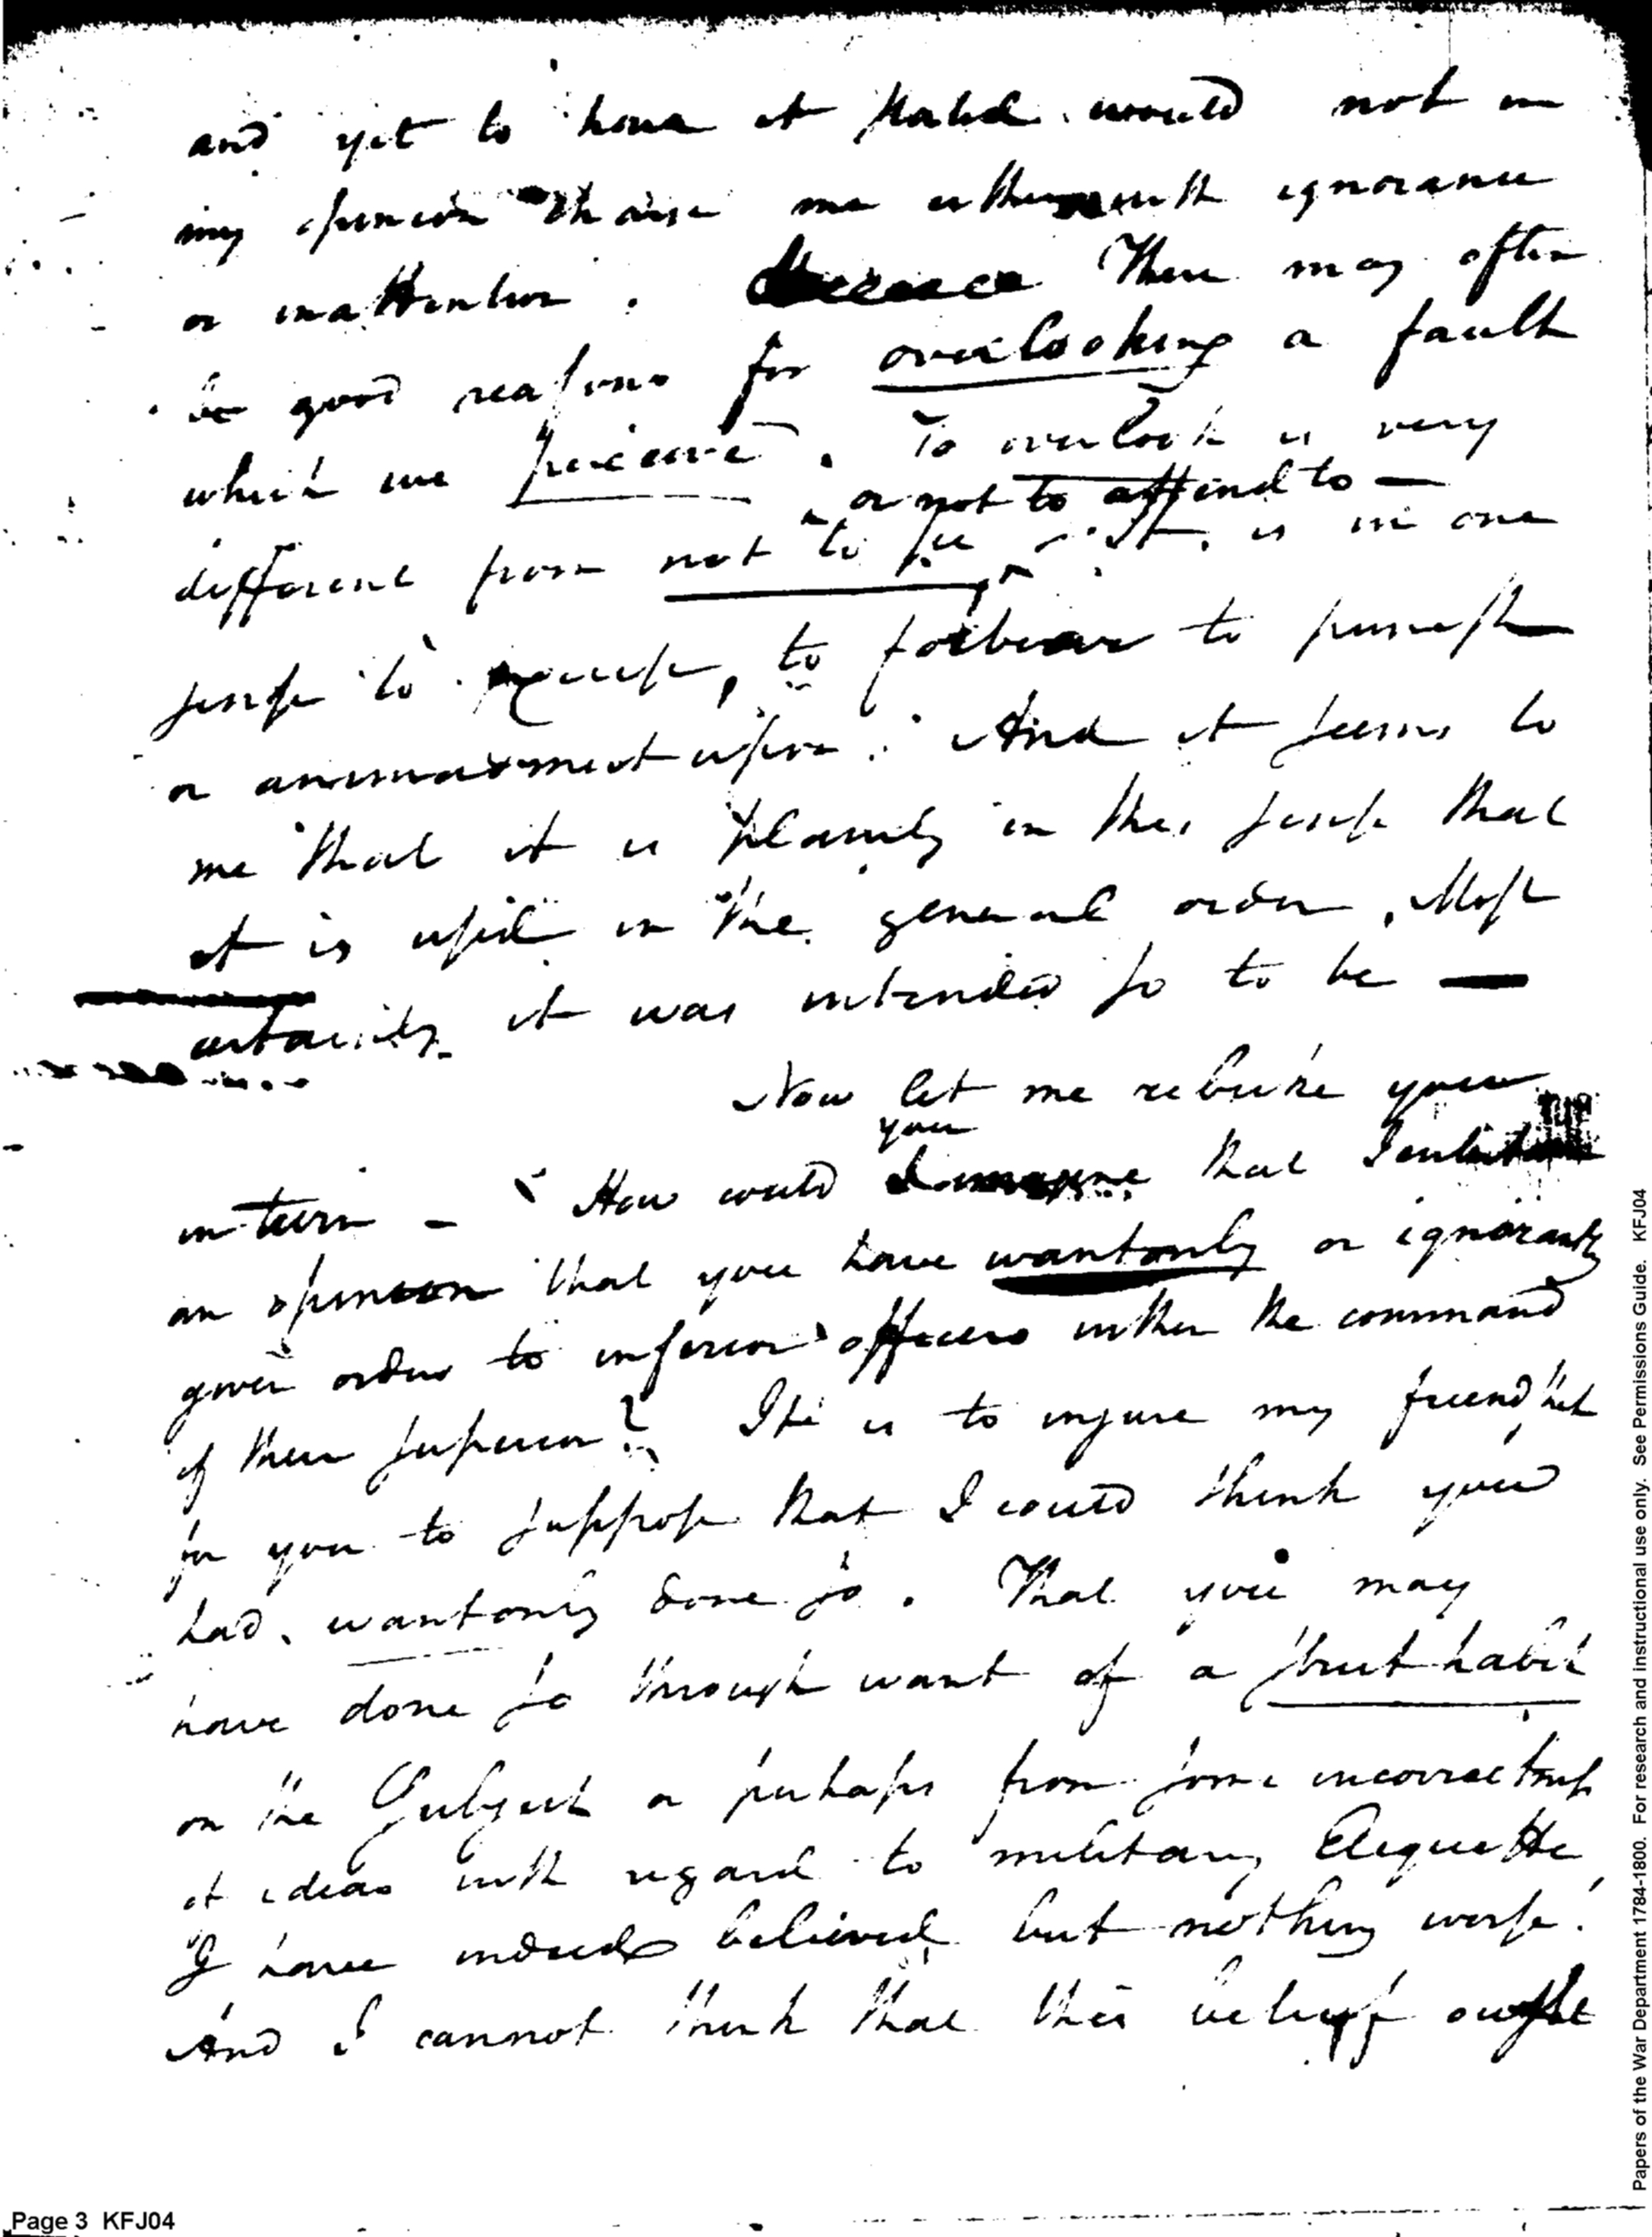 and yet to have it stated would not in
my opinion charge me either with ignorance
or inattention. There may often
be good reasons for overlooking a fault
which we perceive. To overlook is very
or not to attend to —
different from not to see. It is in one
sense to excuse, to forbear to punish
or animadvert upon. And it seems to
me that it is plainly in this sense that
it is used in the general order. Most
certainly it was intended so to be —
Now let me rebuke you
you
in turn — How could imagine that I entertain
an opinion that you have wantonly or ignorantly
given orders to inferior officers within the command
of their superior? It is to injure my friendship
for you to suppose that I could think you
had wantonly done so. That you may
have done so through want of a strict habit
on the Subject or perhaps from some incorrectness
of ideas with regard to military Etiquette
I have indeed believed but nothing worse.
And I cannot think that this belief ought
Page 3 KFJ04
Papers of the War Department 1784-1800. For research and instructional use only. See Permissions Guide. KFJ04